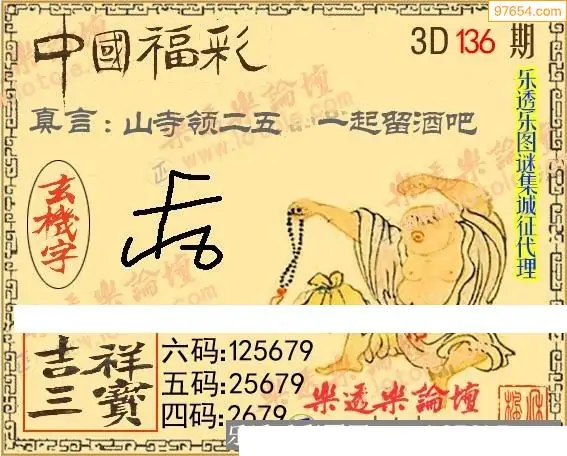 97654.com
中國福彩
3D 136 期
真言：山寺领二五 一起留酒吧
乐透乐图谜集城征代理
玄機字
吉祥三寶
六码:125679
五码:25679
四码:2679
樂透樂論壇